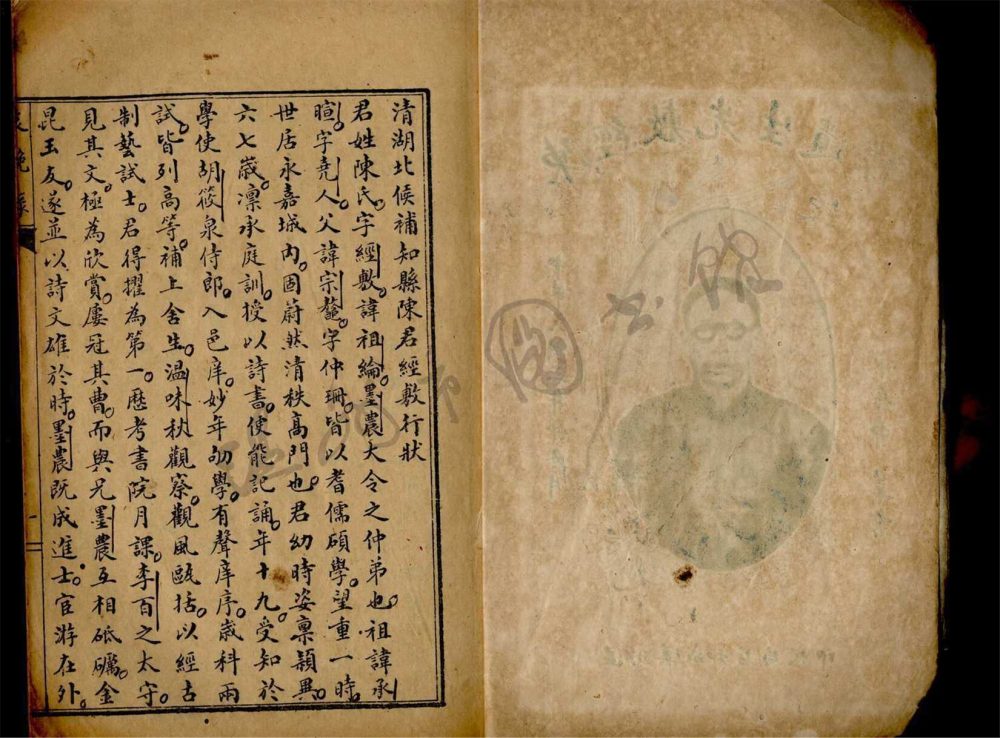 清湖北候補知縣陳君經敷行狀
君姓陳氏。字經敷。諱祖綸。墨農大令之仲弟也。祖諱承
暄。字堯人。父諱宗鰲。字仲珊。皆以耆儒碩學。望重一時。
世居永嘉城內。固蔚然清秩高門也。君幼時姿稟穎異。
六七歲。凛承庭訓。授以詩書。使能記誦。年十九。受知於
學使胡筱泉侍郎。入邑庠。妙年劬學。有聲庠序。歲科兩
試。皆列高等。補上舍生。温味秋觀察。觀風甌括。以經古
制藝試士。君得擢為第一。歷考書院月課。李百之太守。
見其文。極為欣賞。屢冠其曹。而與兄墨農互相砥礪。金
昆玉友。遂並以詩文雄於時。墨農既成進士。宦游在外。